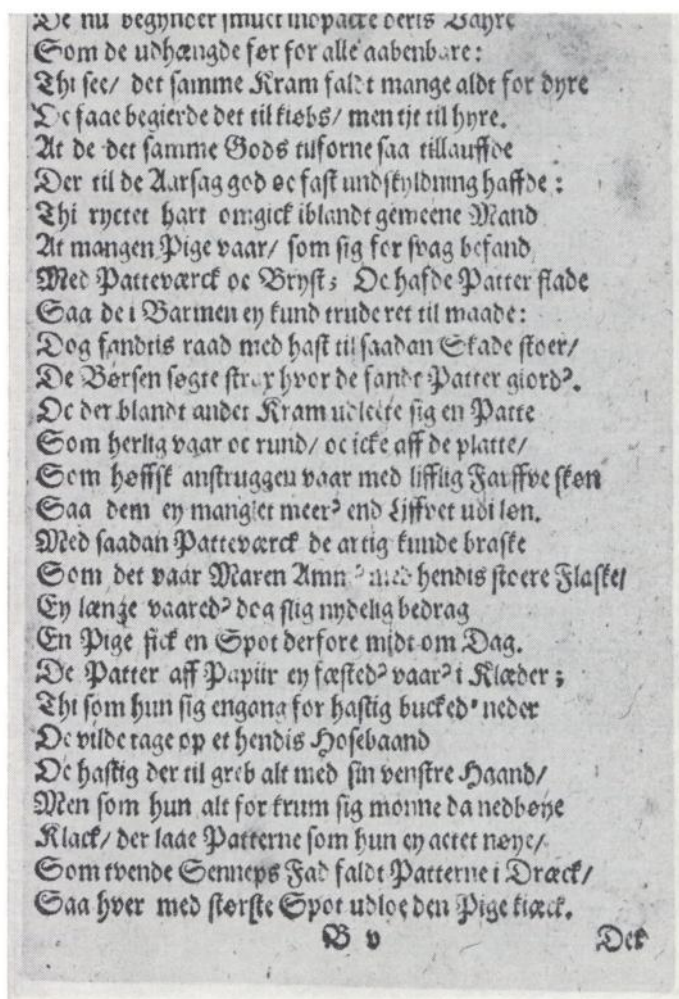 De nu begynder smuct indpacke deris Vahre
Som de udhængde før for alle aabenbare:
Thi see/ det samme Kram faldt mange aldt for dyre
Oc faae begierde det til kiøbs/ men tit til hyre.
At de det samme Gods tilforne saa tillauffde
Der til de Aarsag god oc fast undskyldning haffde:
Thi ryctet hart omgick iblandt gemeene Mand
At mangen Pige vaar/ som sig for svag befand
Med Patteværck oc Bryst; Oc hafde Patter flade
Saa de i Barmen ey kund trude ret til maade:
Dog fandtis raad med hast til saadan Skade stoer/
De Børsen søgte strax hvor de fandt Patter giord'.
Oc der blandt andet Kram udleete sig en Patte
Som herlig vaar oc rund/ oc icke aff de platte/
Som høffsk anstruggen vaar med lifflig Farffve skøn
Saa dem ey manglet meer' end Liffvet udi løn.
Med saadan Patteværck de artig kunde braske
Som det vaar Maren Amn' med hendis stoere Flaske/
Ey længe vaared' dog slig nydelig bedrag
En Pige fick en Spot derfore midt om Dag.
De Patter aff Papiir ey fæsted' vaar' i Klæder;
Thi som hun sig engang for hastig bucked' neder
Oc vilde tage op et hendis Hosebaand
Oc hastig der til greb alt med sin venstre Haand/
Men som hun alt for krum sig monne da nedbøye
Klack/ der laae Patterne som hun ey actet nøye/
Som tvende Senneps Fad faldt Patterne i Dræck/
Saa hver med største Spot udloe den Pige kiæck.
B v Det